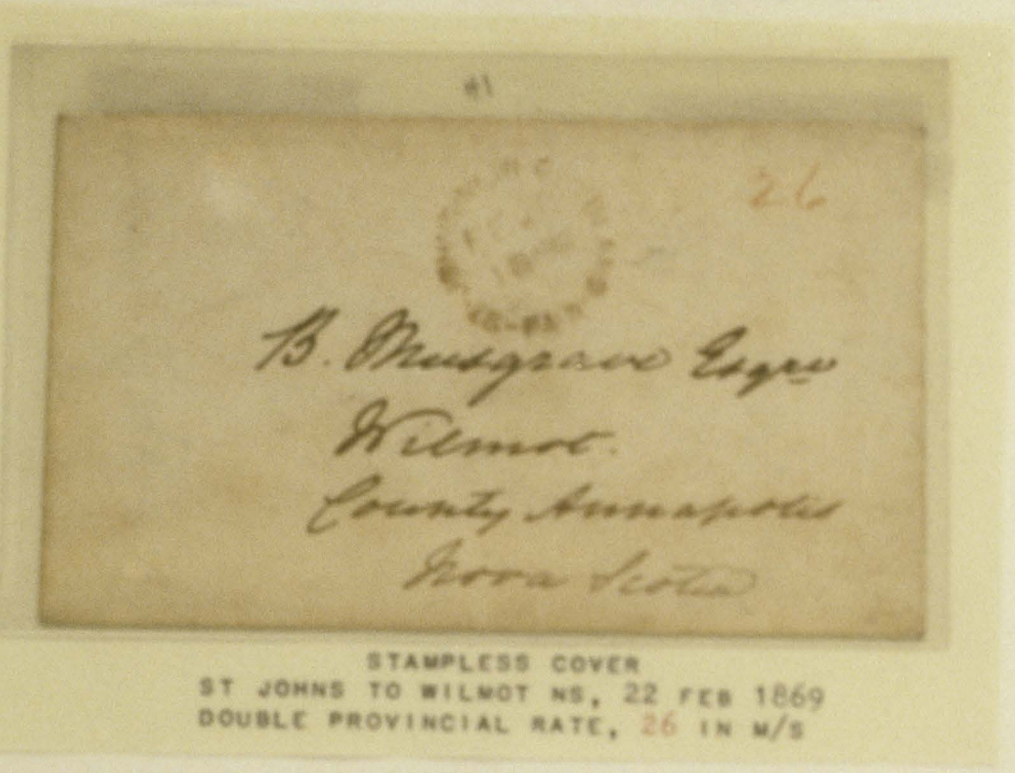 26
B. Musgrave Esqre
Wilmot.
County Annapolis
Nova Scotia
STAMPLESS COVER
ST JOHNS TO WILMOT NS, 22 FEB 1869
DOUBLE PROVINCIAL RATE, 26 IN M/S